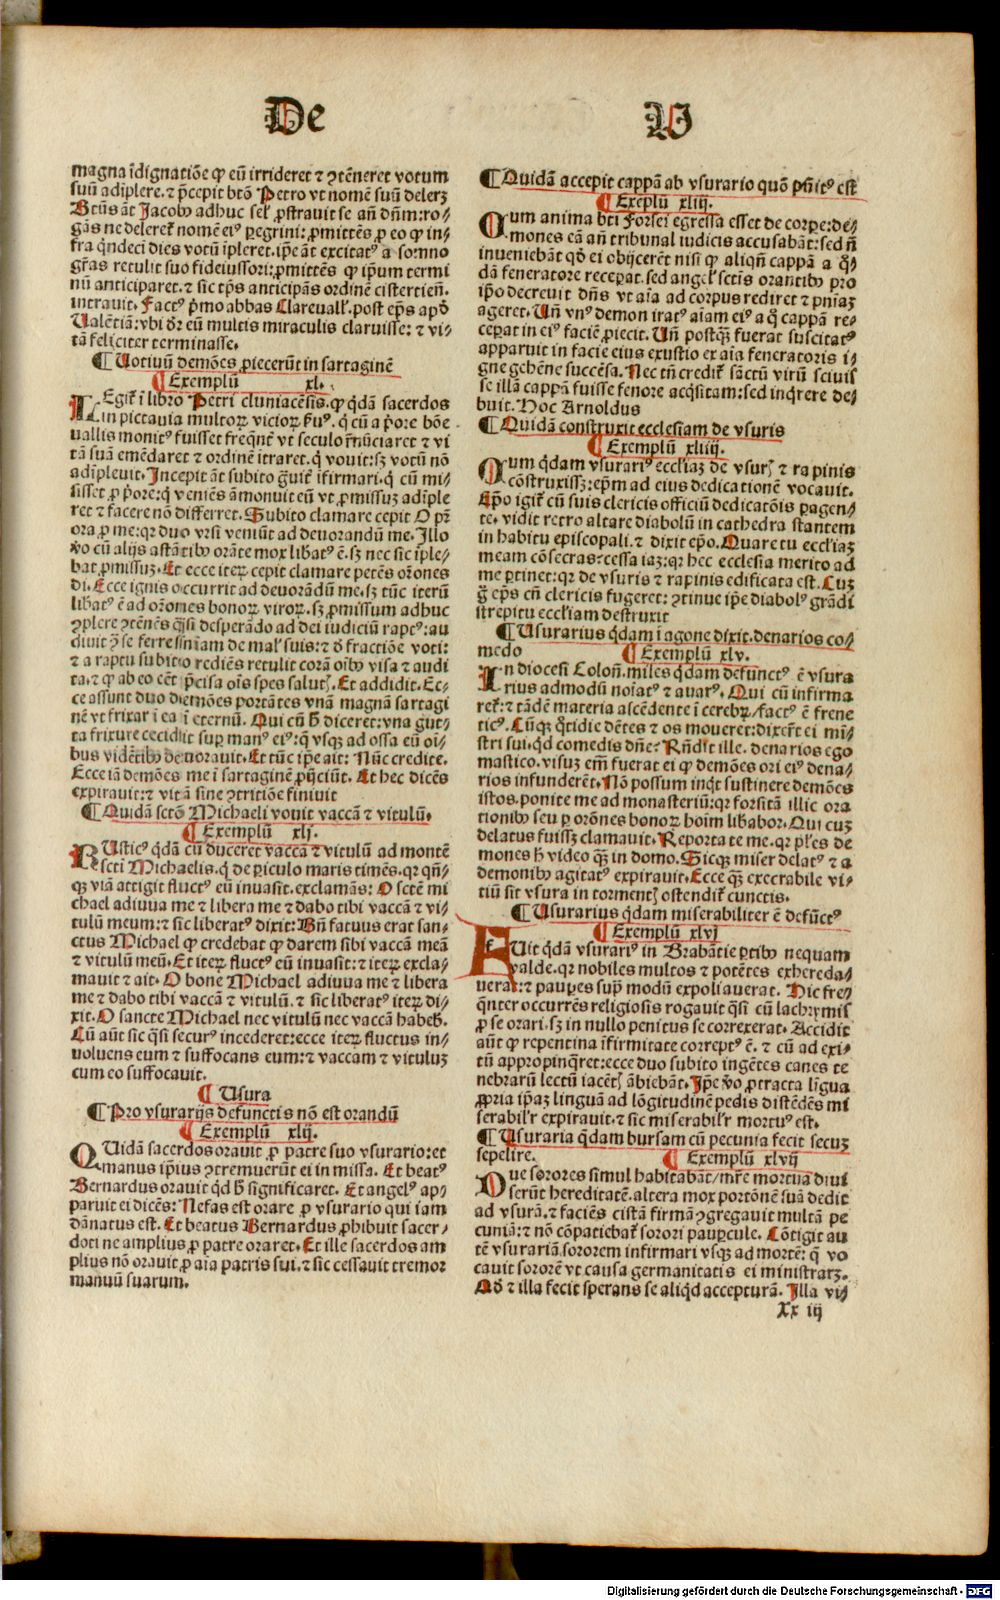 De
V
magna īdignatiōe ꝙ eū irrideret ⁊ ꝯtēneret votum
suū adīplere. ⁊ p̄cepit btō Petro vt nomē suū delerꝫ
Btūs āt Jacobꝰ adhuc sel' ꝓstrauit se añ dñm: ro⸗
gās ne deleretᷣ nomē eiꝰ peregrini: ꝓmittēs ꝓ eo ꝙ in⸗
fra qndecī dies votū īpleret. ip̄e āt excitatꝰ a somno
gr̄as retulit suo fideiussori: ꝓmittēs ꝙ ip̄um termi
nū anticiparet. ⁊ sic tp̄s anticipās ordinē cistertieñ.
intrauit. Factꝰ pͥmo abbas Clareuall'. post ep̄s apd̓
Ualētiā: vbi dr̄ eū multis miraculis claruisse: ⁊ vi⸗
tā feliciter terminasse.
¶ Uotiuū demōes piecerūt in sartaginē
¶ Exemplū xl.
LEgitᷣ ī libro Petri cluniacēsis. ꝙ qͥdā sacerdos
in pictauia multoꝝ vicioꝝ ẜuꝰ. q̄ cū a pͥore bōe
uallis monitꝰ fuisset freqñt̓ vt seculo r̄nūciaret ⁊ vi
tā suā emēdaret ⁊ ordinē itraret. qͥ vouit: sꝫ votū nō
adīpleuit. Incepit āt subito gͣuit̓ īfirmari. qͥ cū mi⸗
sisset ꝓ pͥore: qͥ veniēs āmonuit eū vt ꝓmissuꝫ adīple
ret ⁊ facere nō differret. Subito clamare cepit O pr̄
ora ꝓ me: qꝛ duo vrsi veniūt ad deuorandū me. Illo
v̓o cū alijs astātibꝰ orāte mox lib̓atꝰ ē. sꝫ nec sic iple⸗
bat ꝓmissuꝫ. Et ecce iteꝝ cepit clamare petēs or̄ones
di. Ecce ignis occurrit ad deuorādū me. sꝫ tūc iterū
lib̓atꝰ ē ad or̄ones bonoꝝ viroꝝ. sꝫ ꝓmissum adhuc
ꝯplere ꝯtēnēs qͣsi desperādo ad dei iudiciū raptꝰ: au
diuit ꝗ̄ se ferre s̄niam de mal' suis: ⁊ d̓ fractiōe voti:
⁊ a raptu subitio rediēs retulit corā oībꝰ visa ⁊ audi
ta. ⁊ ꝙ ab eo eēt p̄cisa oīs spes salutꝭ. Et addidit. Ec⸗
ce assunt duo diemōes portātes vnā magnā sartagi
nē vt frixar ī ea ī eternū. Qui cū h̄ diceret: vna gut⸗
ta frixure cecidit suꝑ manꝰ eiꝰ: q̄ vsqꝫ ad ossa eū oī⸗
bus vidētibꝰ deuorauit. Et tūc ip̄e ait: Nūc credite.
Ecce iā demōes me ī sartaginē pijciūt. Et hec dicēs
expirauit: ⁊ vitā sine ꝯtritiōe finiuit
¶ Quidā sctō Michaeli vouit vaccā ⁊ vitulū.
¶ Exemplū xlj.
RUsticꝰ qͥdā cū duceret vaccā ⁊ vitulū ad montē
scti Michaelis. qͥ de periculo maris timēs. qꝛ qñ⸗
qꝫ viā attigit fluctꝰ eū inuasit. exclamās: O sctē mi
chael adiuua me ⁊ libera me ⁊ dabo tibi vaccā ⁊ vi⸗
tulū meum: ⁊ sic liberatꝰ dixit: Bñ fatuus erat san⸗
ctus Michael ꝙ credebat ꝙ darem sibi vaccā meā
⁊ vitulū meū. Et iteꝝ fluctꝰ eū inuasit: ⁊ iteꝝ excla⸗
mauit ⁊ ait. O bone Michael adiuua me ⁊ libera
me ⁊ dabo tibi vaccā ⁊ vitulū. ⁊ sic liberatꝰ iteꝝ di⸗
xit. O sancte Michael nec vitulū nec vaccā habeb̓.
Cū aūt sic qͣsi securꝰ incederet: ecce iteꝝ fluctus in⸗
uoluens eum ⁊ suffocans eum: ⁊ vaccam ⁊ vituluꝫ
cum eo suffocauit.
¶ Usura
¶ Pro vsurarijs defunctis nō est orandū
¶ Exemplū xlij.
QUidā sacerdos orauit ꝓ patre suo vsurario: et
manus ip̄ius ꝯtremuerūt ei in missa. Et beatꝰ
Bernardus orauit qͥd h̄ significaret. Et angelꝰ ap⸗
paruit ei dicēs: Nefas est orare ꝓ vsurario qui iam
dānatus est. Et beatus Bernardus ꝓhibuit sacer⸗
doti ne amplius ꝓ patre oraret. Et ille sacerdos am
plius nō orauit ꝓ aīa patris sui. ⁊ sic cessauit tremor
manuū suarum.
¶ Quidā accepit cappā ab vsurario quō pūitꝰ est
¶ Exēplū xliij.
Cum anima bti Forsei egressa esset de corꝑe: de⸗
mones eā añ tribunal iudicis accusabāt: sed ñ
inueniebāt qd̓ ei obijcerēt nisi ꝙ aliqñ cappā a qͦ⸗
dā feneratore recepat. sed angel' sctīs orantibꝰ pro
ip̄o decreuit dñs vt aīa ad corpus rediret ⁊ pniaꝫ
ageret. Uñ vnꝰ demon iratꝰ aīam eiꝰ a qͦ cappā re⸗
cepat in eiꝰ faciē piecit. Uñ postqͣꝫ fuerat suscitatꝰ
apparuit in facie eius exustio ex aīa feneratoris i⸗
gne gehēne succēsa. Nec tñ creditᷣ sāctū virū scīuis
se illā cappā fuisse fenore acqͥsitam: sed inqͥrere de⸗
buit. Hoc Arnoldus
¶ Quidā construxit ecclesiam de vsuris
¶ Exemplū xliiij.
Cum qͥdam vsurariꝰ eccl̓iaꝫ de vsurꝭ ⁊ rapinis
cōstruxissꝫ: ep̄m ad eius dedicationē vocauit.
Ep̄o igitᷣ cū suis clericis officiū dedicatōis pagen⸗
te. vidit retro altare diabolū in cathedra stantem
in habitu episcopali. ⁊ dixit ep̄o. Quare tu eccl̓iaꝫ
meam cōsecras: cessa iaꝫ: qꝛ hec ecclesia merito ad
me ptinet: qꝛ de vsuris ⁊ rapinis edificata est. Cuꝫ
g̓ ep̄s cū clericis fugeret: ꝯtinue ip̄e diabolꝰ grādi
strepitu eccl̓iam destruxit
¶ Usurarius qͥdam ī agone dixit. denarios co⸗
medo ¶ Exemplū xlv.
In diocesi Coloñ. miles qͥdam defunctꝰ ē vsura
rius admodū noīatꝰ ⁊ auarꝰ. Qui cū infirma
retᷣ: ⁊ tādē materia ascēdente ī cerebꝝ / factꝰ ē frene
ticꝰ. Cūqꝫ qͦtidie dētes ⁊ os moueret: dixer̄t ei mī⸗
stri sui. qͥd comedis dñe? Rñdit ille. denarios ego
mastico. visuꝫ em̄ fuerat ei ꝙ demōes ori eiꝰ dena⸗
rios infunderēt. Nō possum inqͥt sustinere demōes
istos. ponite me ad monasteriū: qꝛ forsitā illic ora
tionibꝰ seu ꝑ orōnes bonoꝝ hoīm lib̓abor. Qui cuꝫ
delatus fuissꝫ clamauit. Reporta te me. qꝛ pl̓es de
mones h̄ video qͣꝫ in domo. Sicqꝫ miser delatꝰ ⁊ a
demonibꝰ agitatꝰ expirauit. Ecce qͣꝫ execrabile vi⸗
tiū sit vsura in tormentꝭ ostenditᷣ cunctis.
¶ Usurarius qͥdam miserabiliter ē defūctꝰ
¶ Exemplū xlvj
FUit qͥdā vsurariꝰ in Brabātie ꝑtibꝰ nequam
valde. qꝛ nobiles multos ⁊ potētes exhereda⸗
uerat: ⁊ pauꝑes supͣ modū expoliauerat. Hic fre⸗
qͥnter occurrēs religiosis rogauit qͣsi cū lachrymis
ꝓ se orari. sꝫ in nullo penitus se correxerat. Accidit
aūt ꝙ repentina īfirmitate correptꝰ ē. ⁊ cū ad exi⸗
tū appropinqͣret: ecce duo subito ingētes canes te
nebrarū lectū iacētꝭ ābiebāt. Ip̄e v̓o ꝓtracta līgua
ꝓpria ip̄aꝫ linguā ad lōgitudinē pedis distēdēs mi
serabil'r expirauit. ⁊ sic miserabil'r mortuꝰ est.
¶ Usuraria qͥdam bursam cū pecunia fecit secuꝫ
sepelire. ¶ Exemplū xlvij
Due sorores simul habitabāt / mr̄e mortua diui
serūt hereditatē. altera mox portōnē suā dedit
ad vsurā. ⁊ faciēs cistā firmā ꝯgregauit multā pe
cuniā: ⁊ nō cōpatiebatᷣ sorori pauꝑcule. Cōtigit au
tē vsurariā sororem infirmari vsqꝫ ad mortē: q̄ vo
cauit sororē vt causa germanitatis ei ministrarꝫ.
Qd̓ ⁊ illa fecit sperans se aliqͥd accepturā. Illa vi⸗
Xx iij
Digitalisierung gefördert durch die Deutsche Forschungsgemeinschaft - DFG